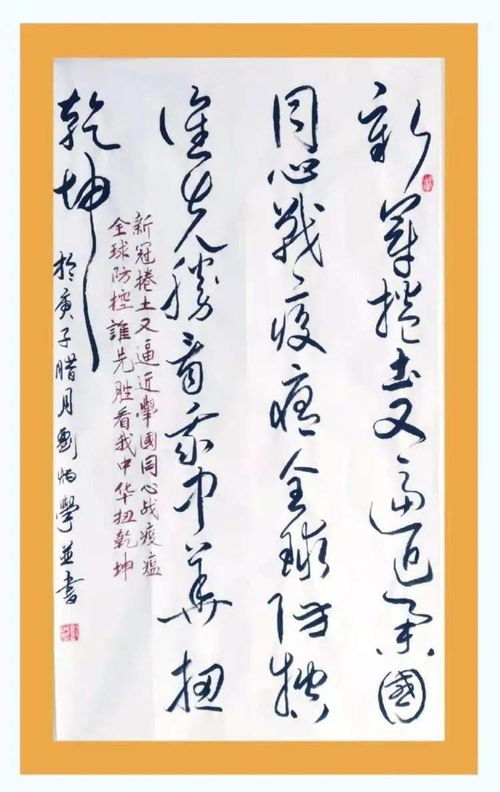 新冠捲土又逼近举國
同心战疫瘟全球防控
谁先勝看我中华扭
乾坤
新冠捲土又逼近舉國同心战疫瘟
全球防控誰先胜看我中华扭乾坤
於庚子腊月劉炳學並書